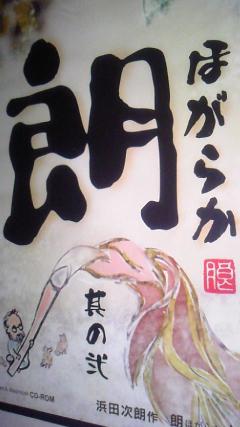 ほがらか
朗
其の弐
CD-ROM
浜田次朗作、朗